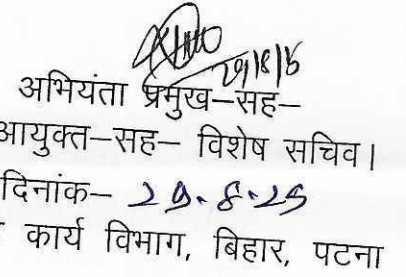 29/8/25
अभियंता प्रमुख–सह–
आयुक्त–सह– विशेष सचिव।
दिनांक– 29.8.25
कार्य विभाग, बिहार, पटना